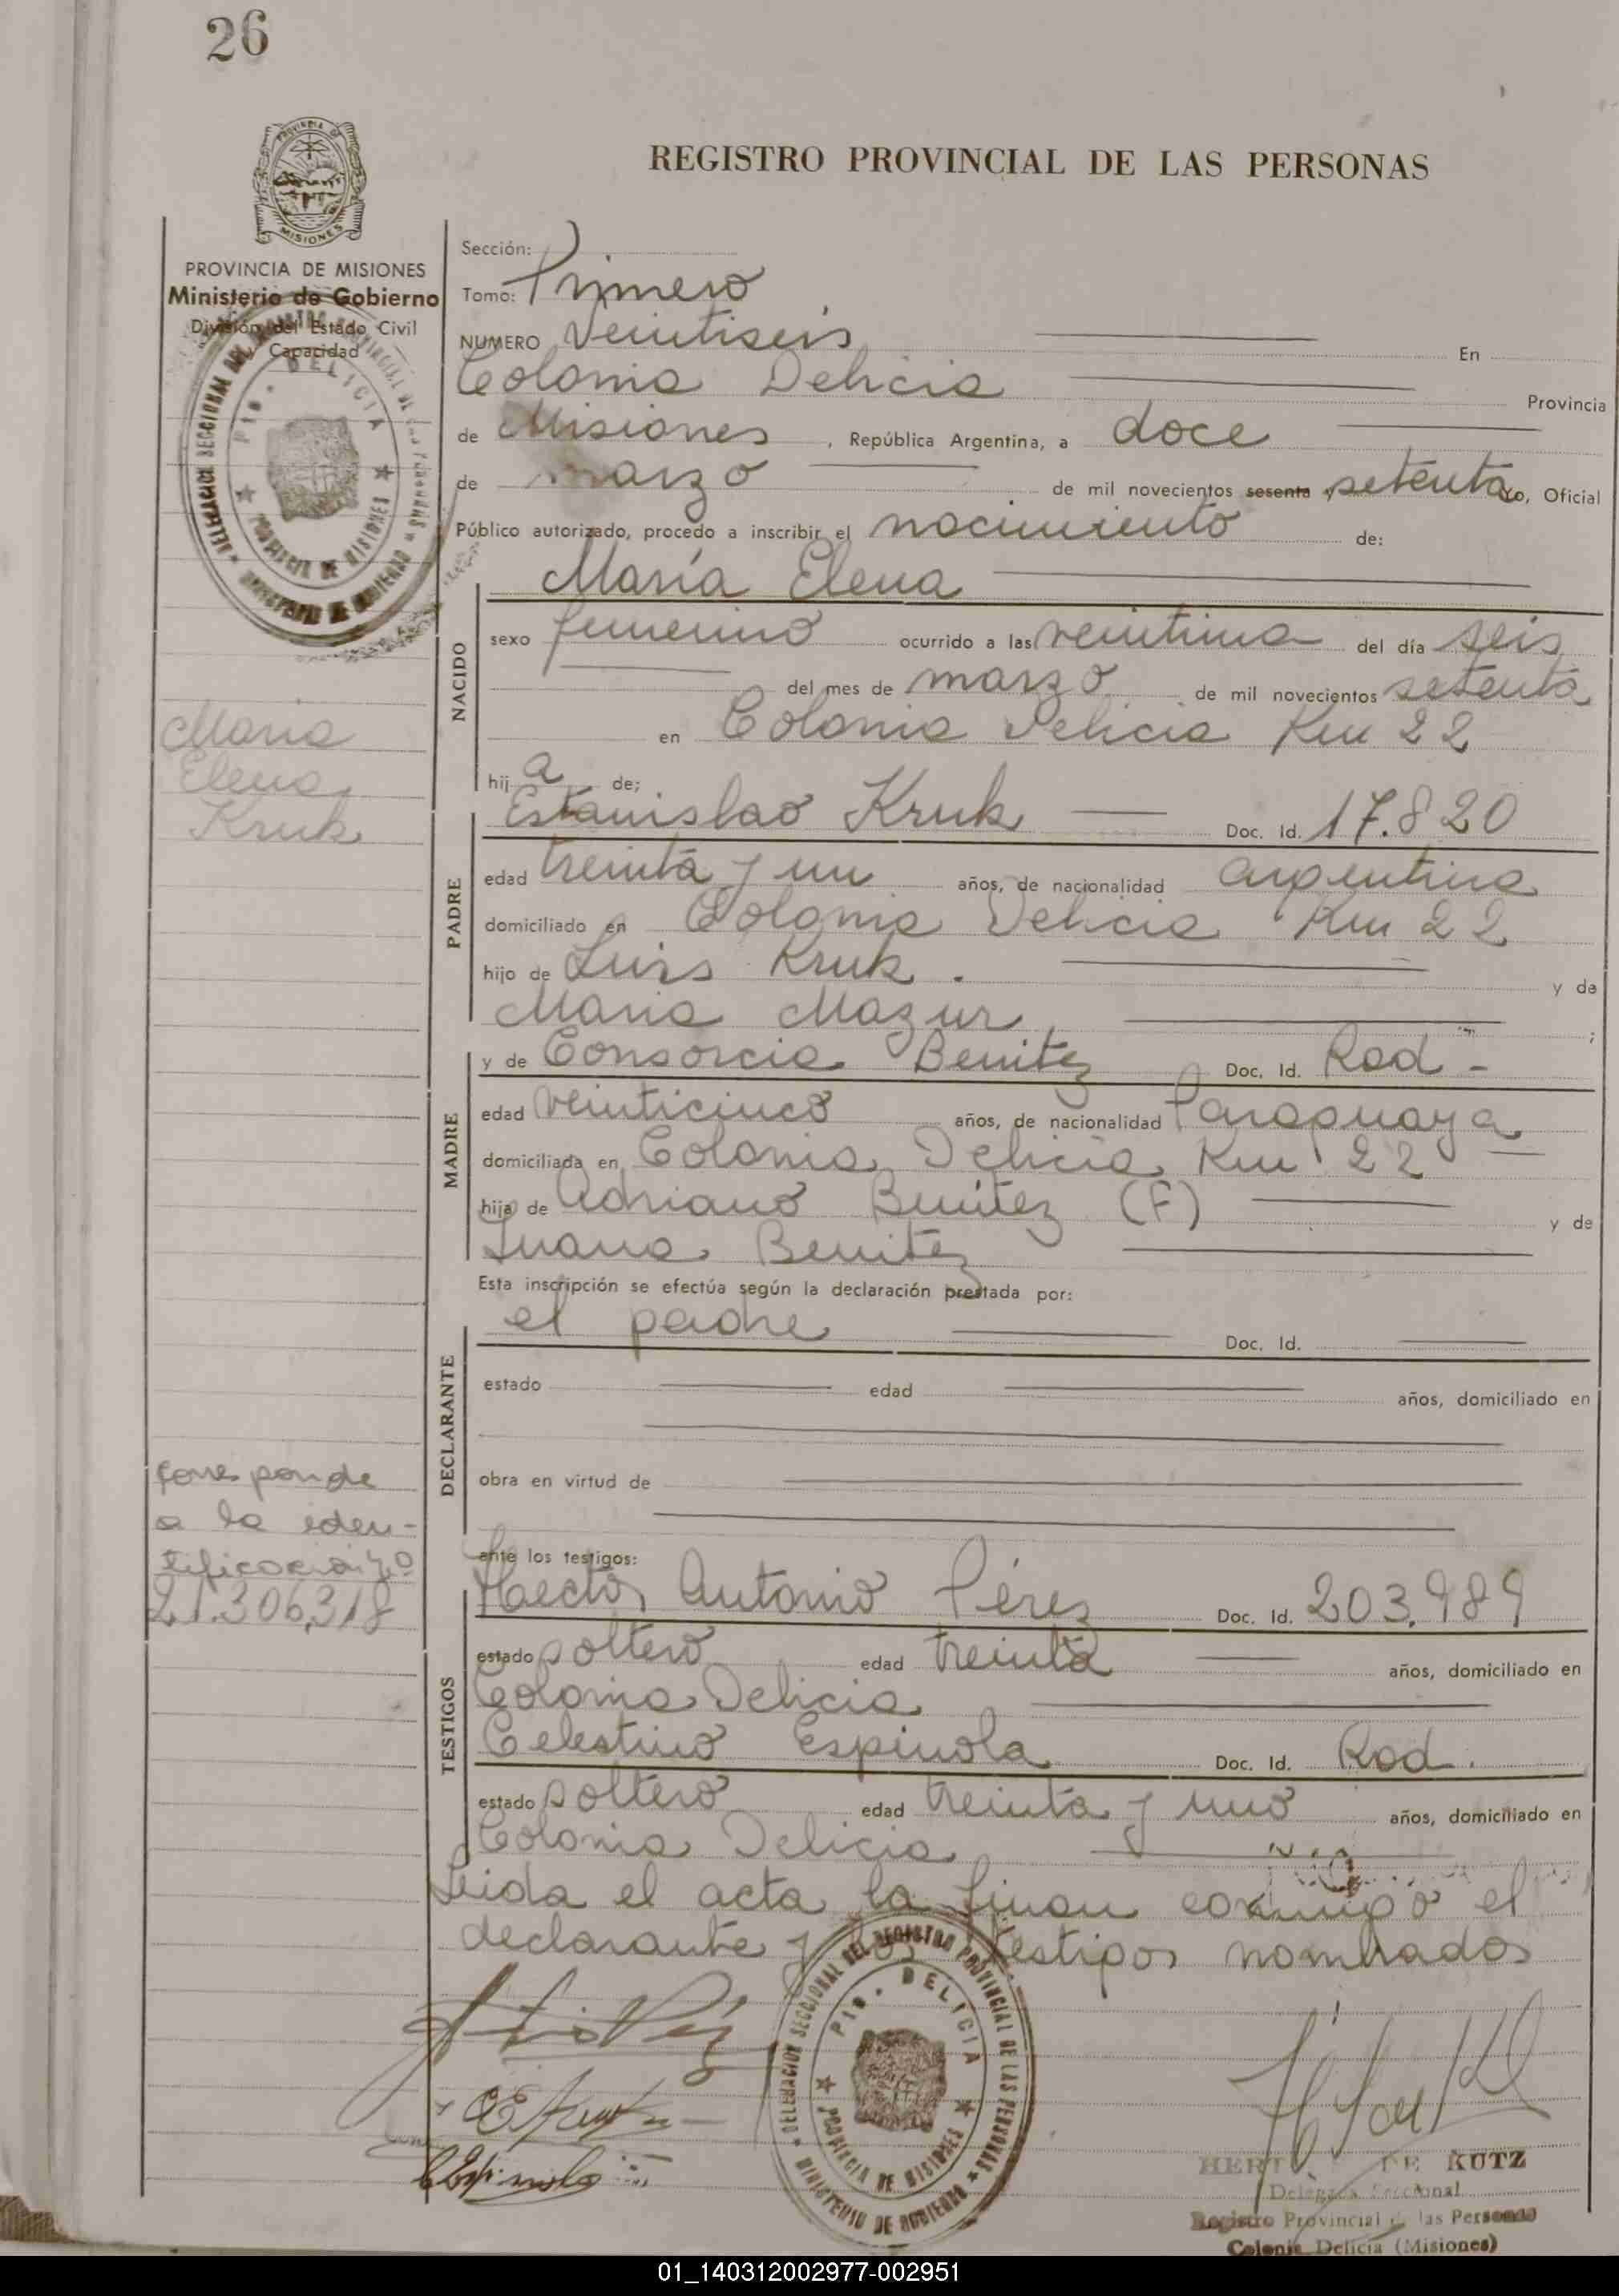 26
PROVINCIA DE MISIONES
REGISTRO PROVINCIAL DE LAS PERSONAS
PROVINCIA DE MISIONES
Ministerio de Gobierno
División del Estado Civil
y Capacidad
DELEGACION SECCIONAL DEL REGISTRO PROVINCIAL DE LAS PERSONAS
PTO. DELICIA
PROVINCIA DE MISIONES
MINISTERIO DE GOBIERNO
Sección:
Tomo: Primero
NUMERO Veintiseis En
Colonia Delicia Provincia
de Misiones, República Argentina, a doce
de marzo de mil novecientos sesenta y setenta yo, Oficial
Público autorizado, procedo a inscribir el nacimiento de:
María Elena
NACIDO
sexo femenino ocurrido a las veintiuna del día seis
del mes de marzo de mil novecientos setenta
en Colonia Delicia Km 22
hij a de;
Maria
Elena
Kruk
PADRE
Estanislao Kruk Doc. Id. 17.820
edad treinta y un años, de nacionalidad argentina
domiciliado en Colonia Delicia Km 22
hijo de Luis Kruk. y de
Maria Mazur, ;
MADRE
y de Consorcia Benitez Doc. Id. Rad -
edad veinticinco años, de nacionalidad Paraguaya
domiciliada en Colonia Delicia Km 22
hija de Adriano Benitez (F) y de
Juana Benitez
Esta inscripción se efectúa según la declaración prestada por:
DECLARANTE
el padre Doc. Id.
estado edad años, domiciliado en
obra en virtud de
Corresponde
a la iden-
tificación Nº
21.306,318
ante los testigos:
TESTIGOS
Hector Antonio Pérez Doc. Id. 203.989
estado soltero edad treinta años, domiciliado en
Colonia Delicia
Celestino Espinola Doc. Id. Rad.
estado soltero edad treinta y uno años, domiciliado en
Colonia Delicia
Leida el acta la firman conmigo el
declarante y los testigos nombrados
DELEGACION SECCIONAL DEL REGISTRO PROVINCIAL DE LAS PERSONAS
PTO. DELICIA
PROVINCIA DE MISIONES
MINISTERIO DE GOBIERNO
C Espinola
DE KUTZ
Delegada Seccional
Registro Provincial de las Personas
Colonia Delicia (Misiones)
01_140312002977-002951